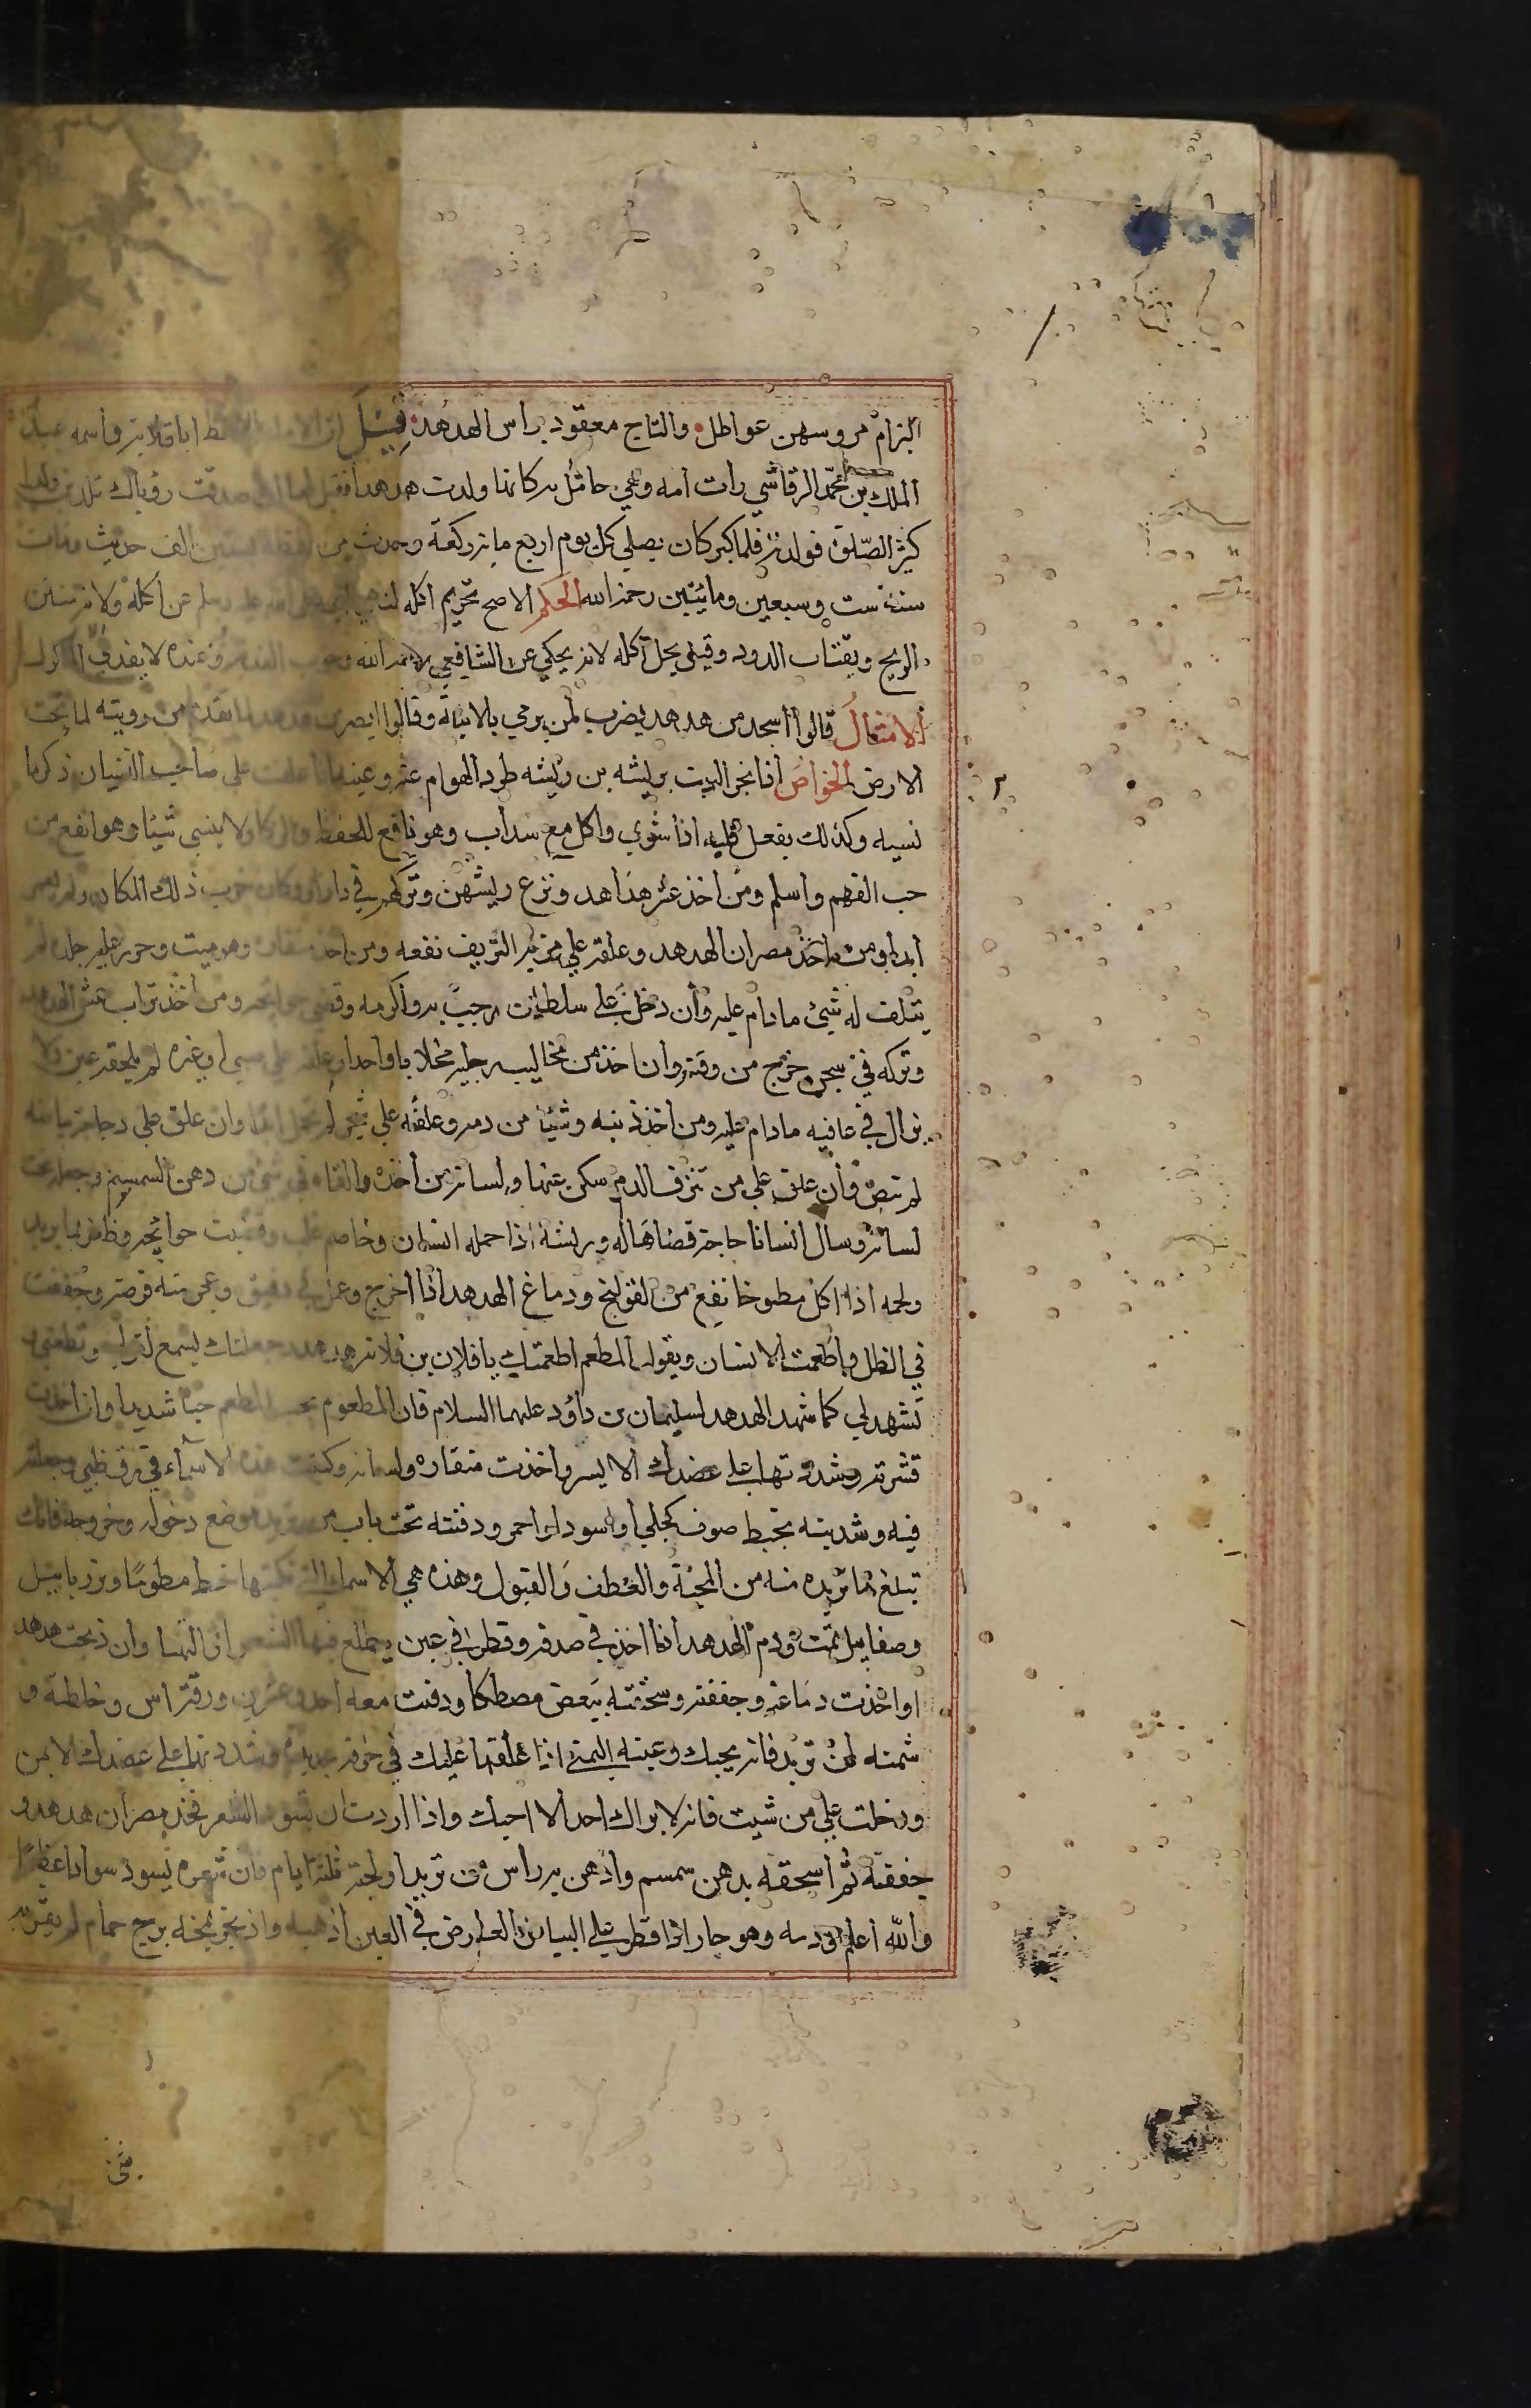 البزاة مروسهن عواطل والتاج معقود براس الهدهد قيل ان الامام الحافظ ابا قلابة واسمه عبد
الملك بن محمد الرقاشي رات امه وهي حامل به كانها ولدت هدهدا فقيل لها ان صدقت رؤياك تلدين ولدا
كثير الصلوة فولدته فلما كبر كان يصلي كل يوم اربع ماية ركعة وحدث من حفظه بستين الف حديث ومات
سنة ست وسبعين ومائتين رحمه الله الحكم الاصح تحريم اكله لنهي النبي صلى الله عليه وسلم عن اكله ولانه منتن
الريح ويقتات الدود وقيل يحل اكله لانه يحكي عن الشافعي رحمه الله وجوب الفدية وعنده لا يفدي الا المأكول
الامثال قالوا اسجد من هدهد يضرب لمن يرمي بالابنة وقالوا ابصر من هدهد لما تقدم من رويته لما تحت
الارض الخواص اذا بخر البيت بريشه من ريشه طرد الهوام عنه وعينه اذا علقت على صاحب النسيان ذكر ما
نسيه وكذلك يفعل قلبه اذا شوي واكل مع سداب وهو نافع للحفظ والذكا ولا ينسى شيئا وهو انفع من
حب الفهم واسلم ومن اخذ عشر هداهد ونزع ريشهن وتركهم في دار او دكان خرب ذلك المكان ولم يعمر
ابدا ومن اخذ مصران الهدهد وعلقه على من به النزيف نفعه ومن اخذ منقاره وهو ميت وحرز عليه جلده لم
يتلف له شيئ مادام عليه وان دخل على سلطان رحب به واكرمه وقضى حوائجه ومن اخذ تراب عش الهدهد
وتركه في سجن خرج من وقته وان اخذ من مخاليب رجليه مخلابا واحدا وعلقه على صبي او غيره لم يلحقه عين ولا
يزال في عافيه مادام عليه ومن اخذ ذنبه وشيئا من دمه وعلقه على شجر لم تحمل ابدا وان علق على دجاجة بياضه
لم تبض وان علق على من تنزف الدم سكن عنها ولسانه من اخذه والقاه في شيء من دهن السمسم وجعله تحت
لسانه وسال انسانا حاجة قضاها له وريشه اذا حمله انسان وخاصم غلب وقضيت حوائجه وظفر بما يريد
ولحمه اذا اكل مطبوخا نفع من القولنج ودماغ الهدهد اذا اخرج وعمل في دقيق وعجن منه قرصة وجففت
في الظل واطعمت الانسان ويقول المطعم اطعمتك يا فلان بن فلانة هدهد جعلتك تسمع لقولي وتطعني و
تشهد لي كما شهد الهدهد لسليمان بن داؤد عليهما السلام فان المطعوم يحب المطعم حبا شديدا وان اخذت
قشرته وشددتها على عضدك الايسر واخذت منقاره ولسانه وكتبت هذه الاسماء في رق ظبي وجعلته
فيه وشدينه بخيط صوف كحلي او اسود او احمر ودفنته تحت باب من تريد موضع دخوله وخروجه فانك
تبلغ ما تريده منه من المحبة والعطف والقبول وهذه هي الاسماء التي تكتبها خطيط مطوما وبزربابيل
وصفاييل تمت ودم الهدهد اذا اخذ في صدفة وقطر في عين يطلع فيها الشعر اذالها وان ذبحت هدهد
او اخذت دماغه وجففته وسحقته ببعض مصطكا ودفنت معه احد وعشرين ورقة اس وخلطته و
شمته لمن تريد فانه يحبك وعينه اليمنى اذا علقتها عليك في خرقة جديدة وشددتها على عضدك الايمن
ودخلت على من شيت فانه لا يراك احد الا احبك واذا اردت ان تسود الشعر فخذ مصران هدهد و
جففته ثم اسحقه بدهن سمسم وادهن به راس من تريد او لحيته ثلثة ايام فان شعره يسود سوادا عظيما
والله اعلم ودمه وهو حار اذا قطر على البياض العارض في العين اذهبه واذا بخر بمخه برج حمام لم يقربه
شي